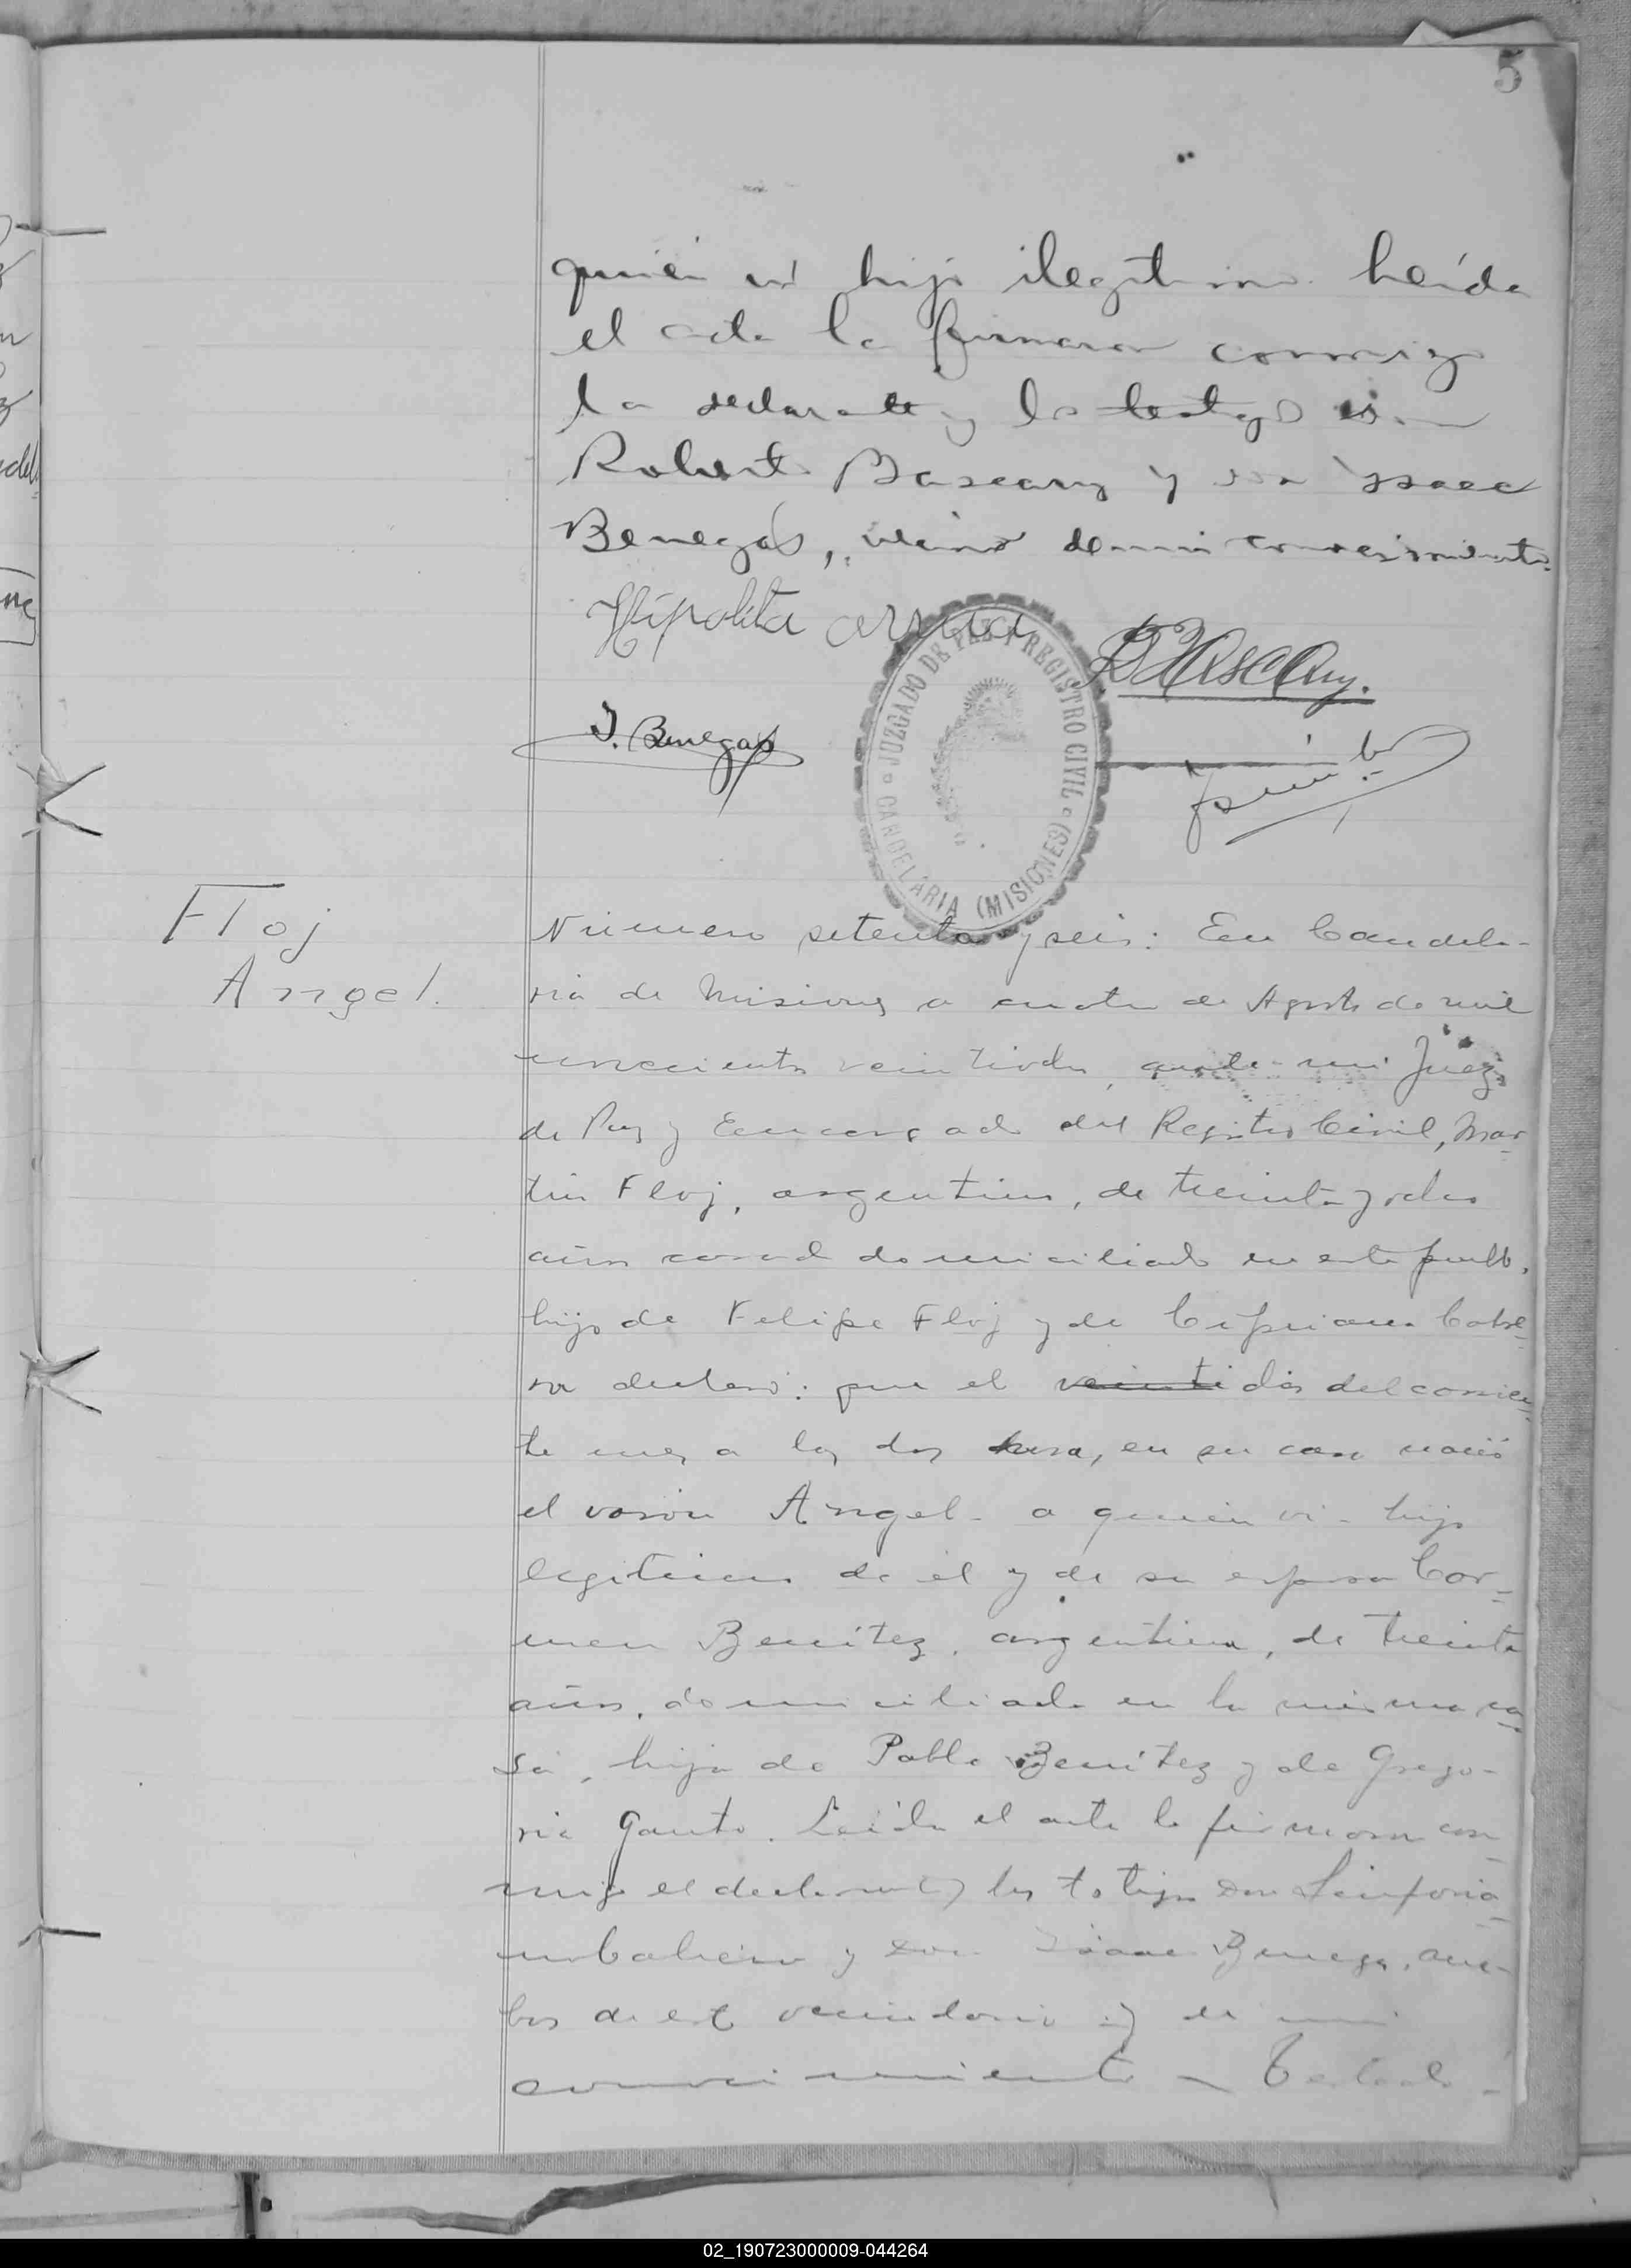 5
quien vi hijo ilegitimo. Leida
el acta la firmaron conmigo
la declarante y los testigos don
Roberto Bascary y don Isaac
Benegas, vecinos de mi conocimiento.
Hipolita
JUZGADO DE PAZ Y REGISTRO CIVIL
CANDELARIA (MISIONES)
RBascary.
I. Benegas
Floj
Angel.
Número setenta y seis: En Candela-
ria de Misiones a cuatro de Agosto de mil
novecientos veintidos, ante mi Juez
de Paz y Encargado del Registro Civil, Mar-
tin Floj, argentino, de treinta y ocho
años casado domiciliado en este pueblo,
hijo de Felipe Floj y de Cipriana Cabre-
ra declaró: que el veinti dos del corrien-
te mes a las dos horas, en su casa nació
el varon Angel a quien vi hijo
legitimo de el y de su esposa Car-
men Benitez, argentina, de treinta
años, domiciliada en la misma ca-
sa, hija de Pablo Benitez y de Grego-
ria Gauto. Leida el acta la firmaron con-
migo el declarante y los testigos Don Sinforia-
no Cabrera y Don Isaac Benegas, am-
bos de este vecindario y de mi
conocimiento - Testado -
02_190723000009-044264